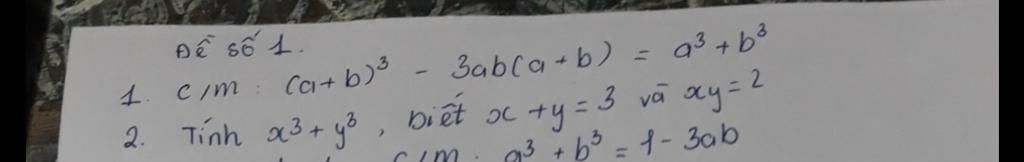 Đề số 1.
1. c/m: (a+b)³ - 3ab(a+b) = a³ + b³
2. Tính x³ + y³, biết x + y = 3 và xy = 2
c/m: a³ + b³ = 1 - 3ab